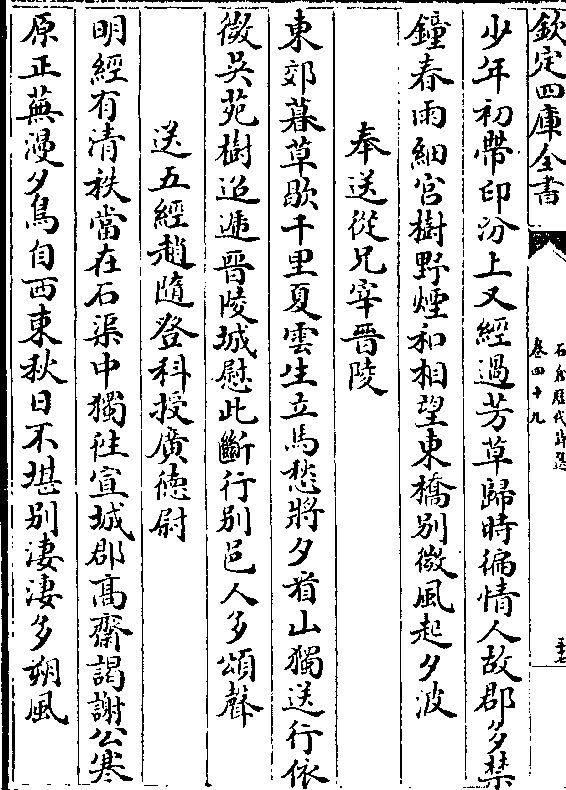 欽定四庫全書
石倉歷代詩選
卷四十九
少年初帶印汾上又經過芳草歸時徧情人故郡多禁
鐘春雨細宮樹野煙和相望東橋別微風起夕波
奉送從兄宰晉陵
東郊暮草歇千里夏雲生立馬愁將夕看山獨送行依
微吳苑樹迢遞晉陵城慰此斷行別邑人多頌聲
送五經趙隨登科授廣德尉
明經有清秩當在石渠中獨往宣城郡高齋謁謝公寒
原正蕪漫夕鳥自西東秋日不堪別淒淒多朔風